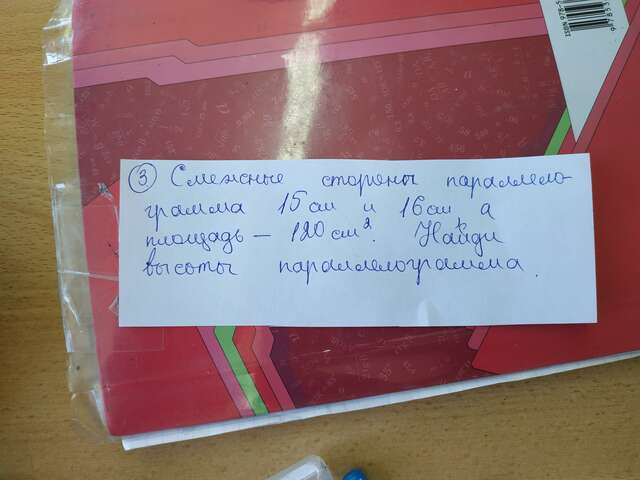 ③ Смежные стороны параллело-
грамма 15 см и 16 см, а
площадь – 120 см². Найди
высоты параллелограмма.